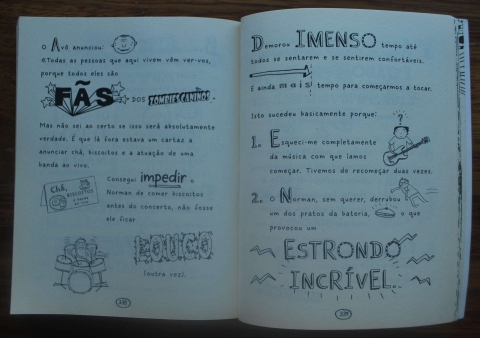 O Avô anunciou:
«Todas as pessoas que aqui vivem vêm ver-vos,
porque todos eles são
FÃS DOS ZOMBIES CANINOS».
Mas não sei ao certo se isso será absolutamente
verdade. É que lá fora estava um cartaz a
anunciar chá, biscoitos e a atuação de uma
banda ao vivo.
Chá,
BISCOITOS
Consegui impedir o
Norman de comer biscoitos
antes do concerto, não fosse
ele ficar
LOUCO
(outra vez).
Demorou IMENSO tempo até
todos se sentarem e se sentirem confortáveis.
E ainda mais tempo para começarmos a tocar.
Isto sucedeu basicamente porque:
1. Esqueci-me completamente
da música com que íamos
começar. Tivemos de recomeçar duas vezes.
2. O Norman, sem querer, derrubou
um dos pratos da bateria, o que
provocou um
ESTRONDO
INCRÍVEL.